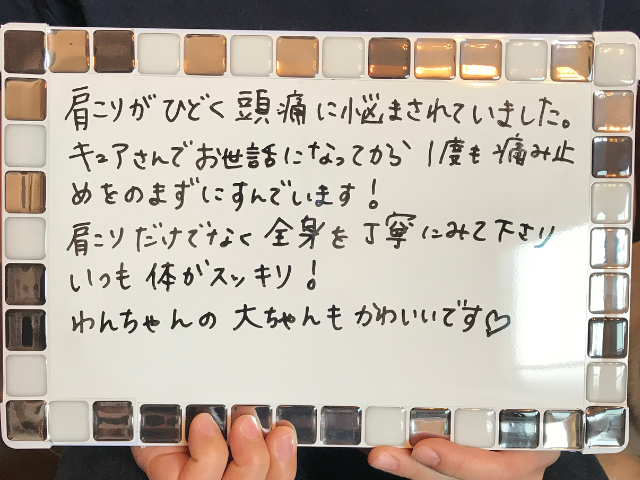 肩こりがひどく頭痛に悩まされていました。
キュアさんでお世話になってから1度も痛み止
めをのまずにすんでいます！
肩こりだけでなく全身を丁寧にみて下さり
いつも体がスッキリ！
わんちゃんの大ちゃんもかわいいです♡